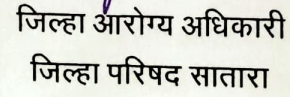 जिल्हा आरोग्य अधिकारी
जिल्हा परिषद सातारा